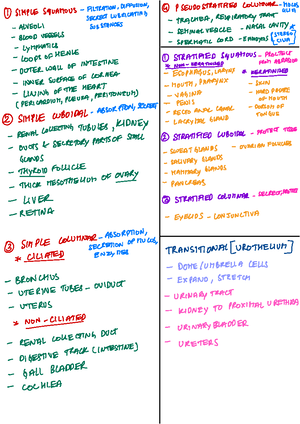 ① SIMPLE SQUAMOUS - FILTRATION, DIFFUSION,
SECRETE LUBRICATING
SUBSTANCES
- ALVEOLI
- BLOOD VESSELS
- LYMPHATICS
- LOOPS OF HENLE
- OUTER WALL OF INTESTINE
- INNER SURFACE OF CORNEA
- LINING OF THE HEART
(PERICARDIUM, PLEURA, PERITONEUM)
② SIMPLE CUBOIDAL - ABSORPTION, SECRETE
- RENAL COLLECTING TUBULES, KIDNEY
- DUCTS & SECRETORY PARTS OF SMALL
GLANDS
- THYROID FOLLICLE
- THICK MESOTHELIUM OF OVARY
- LIVER
- RETINA
③ SIMPLE COLUMNAR - ABSORPTION,
SECRETION OF MUCUS,
ENZYMES
* CILIATED
- BRONCHUS
- UTERINE TUBES - OVIDUCT
- UTERUS
* NON-CILIATED
- RENAL COLLECTING DUCT
- DIGESTIVE TRACK (INTESTINE)
- GALL BLADDER
- COCHLEA
④ PSEUDO STRATIFIED COLUMNAR - MUCUS
- TRACHEA, RESPIRATORY TRACT
- SEMINAL VESICLE - NASAL CAVITY
- SPERMATIC CORD - EPIDIDYMIS [STEREO
CILIA
① STRATIFIED SQUAMOUS - PROTECTS
FROM ABRASION
* NON-KERATINISED
* KERATINISED
- ESOPHAGUS, LARYNX
- SKIN
- MOUTH, PHARYNX
- HARD PALATE
OF MOUTH
- VAGINA
- DORSUM OF
TONGUE
- PENIS
- RECTO ANAL CANAL
- LACRIMAL GLAND
② STRATIFIED CUBOIDAL - PROTECT
- SWEAT GLANDS
- OVARIAN FOLLICLES
- SALIVARY GLANDS
- MAMMARY GLANDS
- PANCREAS
③ STRATIFIED COLUMNAR - SECRETE, PROTECT
- EYELIDS - CONJUNCTIVA
TRANSITIONAL [UROTHELIUM]
- DOME/UMBRELLA CELLS
- EXPAND, STRETCH
- URINARY TRACT
- KIDNEY TO PROXIMAL URETHRA
- URINARY BLADDER
- URETERS